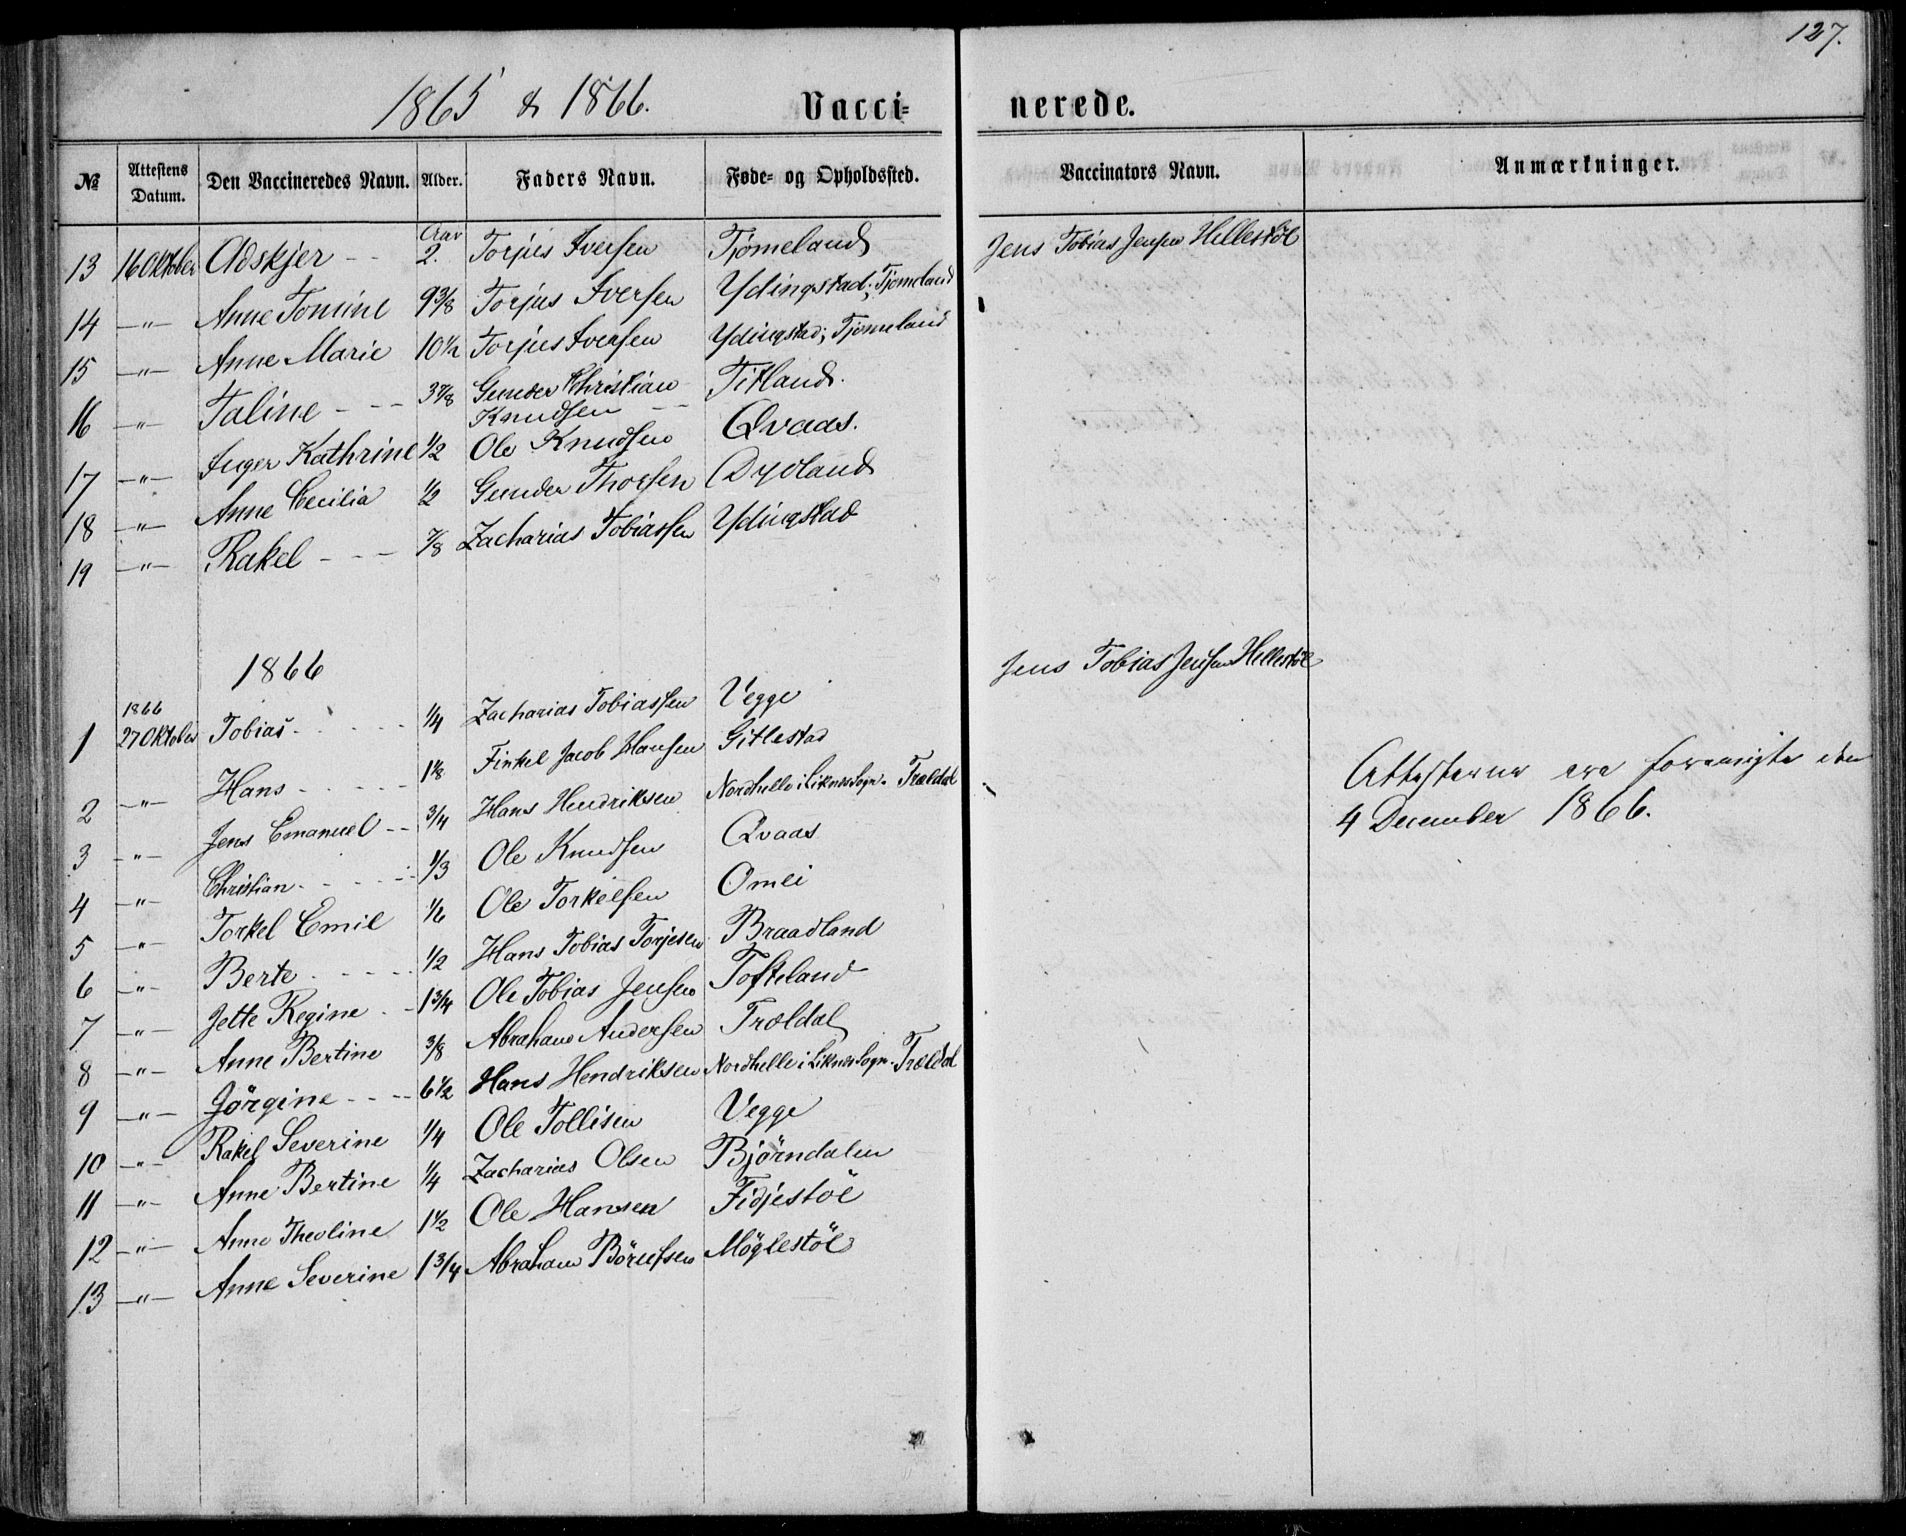 127.
1865 & 1866. Vacci- nerede.
№ Attestens Datum. Den Vaccineredes Navn. Alder. Faders Navn. Føde- og Opholdssted. Vaccinators Navn. Anmærkninger.
13 16 Oktober Adskjer - - Aar 2. Torjus Iversen Tjomeland Jens Tobias Jensen Hellestöl
14 -"- Anne Tomine 9 3/8 Torjus Iversen Ydingstad; Tjomeland
15 -"- Anne Marie 10 1/2 Torjus Iversen Ydingstad; Tjomeland
16 -"- Taline - - - 3 7/8 Gunder Christian Knudsen - - Titland.
17 -"- Inger Kathrine 1/2 Ole Knudsen Qvaas.
18 -"- Anne Cecilia 1/2 Gunder Thorsen Dydland
19 -"- Rakel - - - 7/8 Zacharias Tobiassen Ydingstad
1866 Jens Tobias Jensen Hellestöl
1 1866 27 Oktober Tobias - - - 1/4 Zacharias Tobiassen Vegge
2 -"- Hans - - - 1 1/8 Finkel Jacob Hansen Gitlestad
3 -"- Jens Emanuel - - 3/4 Hans Hendriksen Nordhelle i Liknes Sogn - Trældal
4 -"- Christian - - - 1/3 Ole Knudsen Qvaas
5 -"- Torkel Emil 1/6 Ole Torkelsen Omli
6 -"- Berte - - - 1/2 Hans Tobias Torjesen Braadland
7 -"- Jette Regine - - 1 3/4 Ole Tobias Jensen Tofteland
8 -"- Anne Bertine 3/8 Abraham Andersen Trældal
9 -"- Jörgine - - - 6 1/2 Hans Hendriksen Nordhelle i Liknes Sogn - Trældal
10 -"- Rakel Severine 1/4 Ole Tollisen Vegge
11 -"- Anne Bertine 1/4 Zacharias Olsen Bjørndalen
12 -"- Anne Theoline 1 1/2 Ole Hansen Fidjestöl
13 -"- Anne Severine 1 3/4 Abraham Börufsen Möglestöl
Attesterne ere den
4 December 1866.